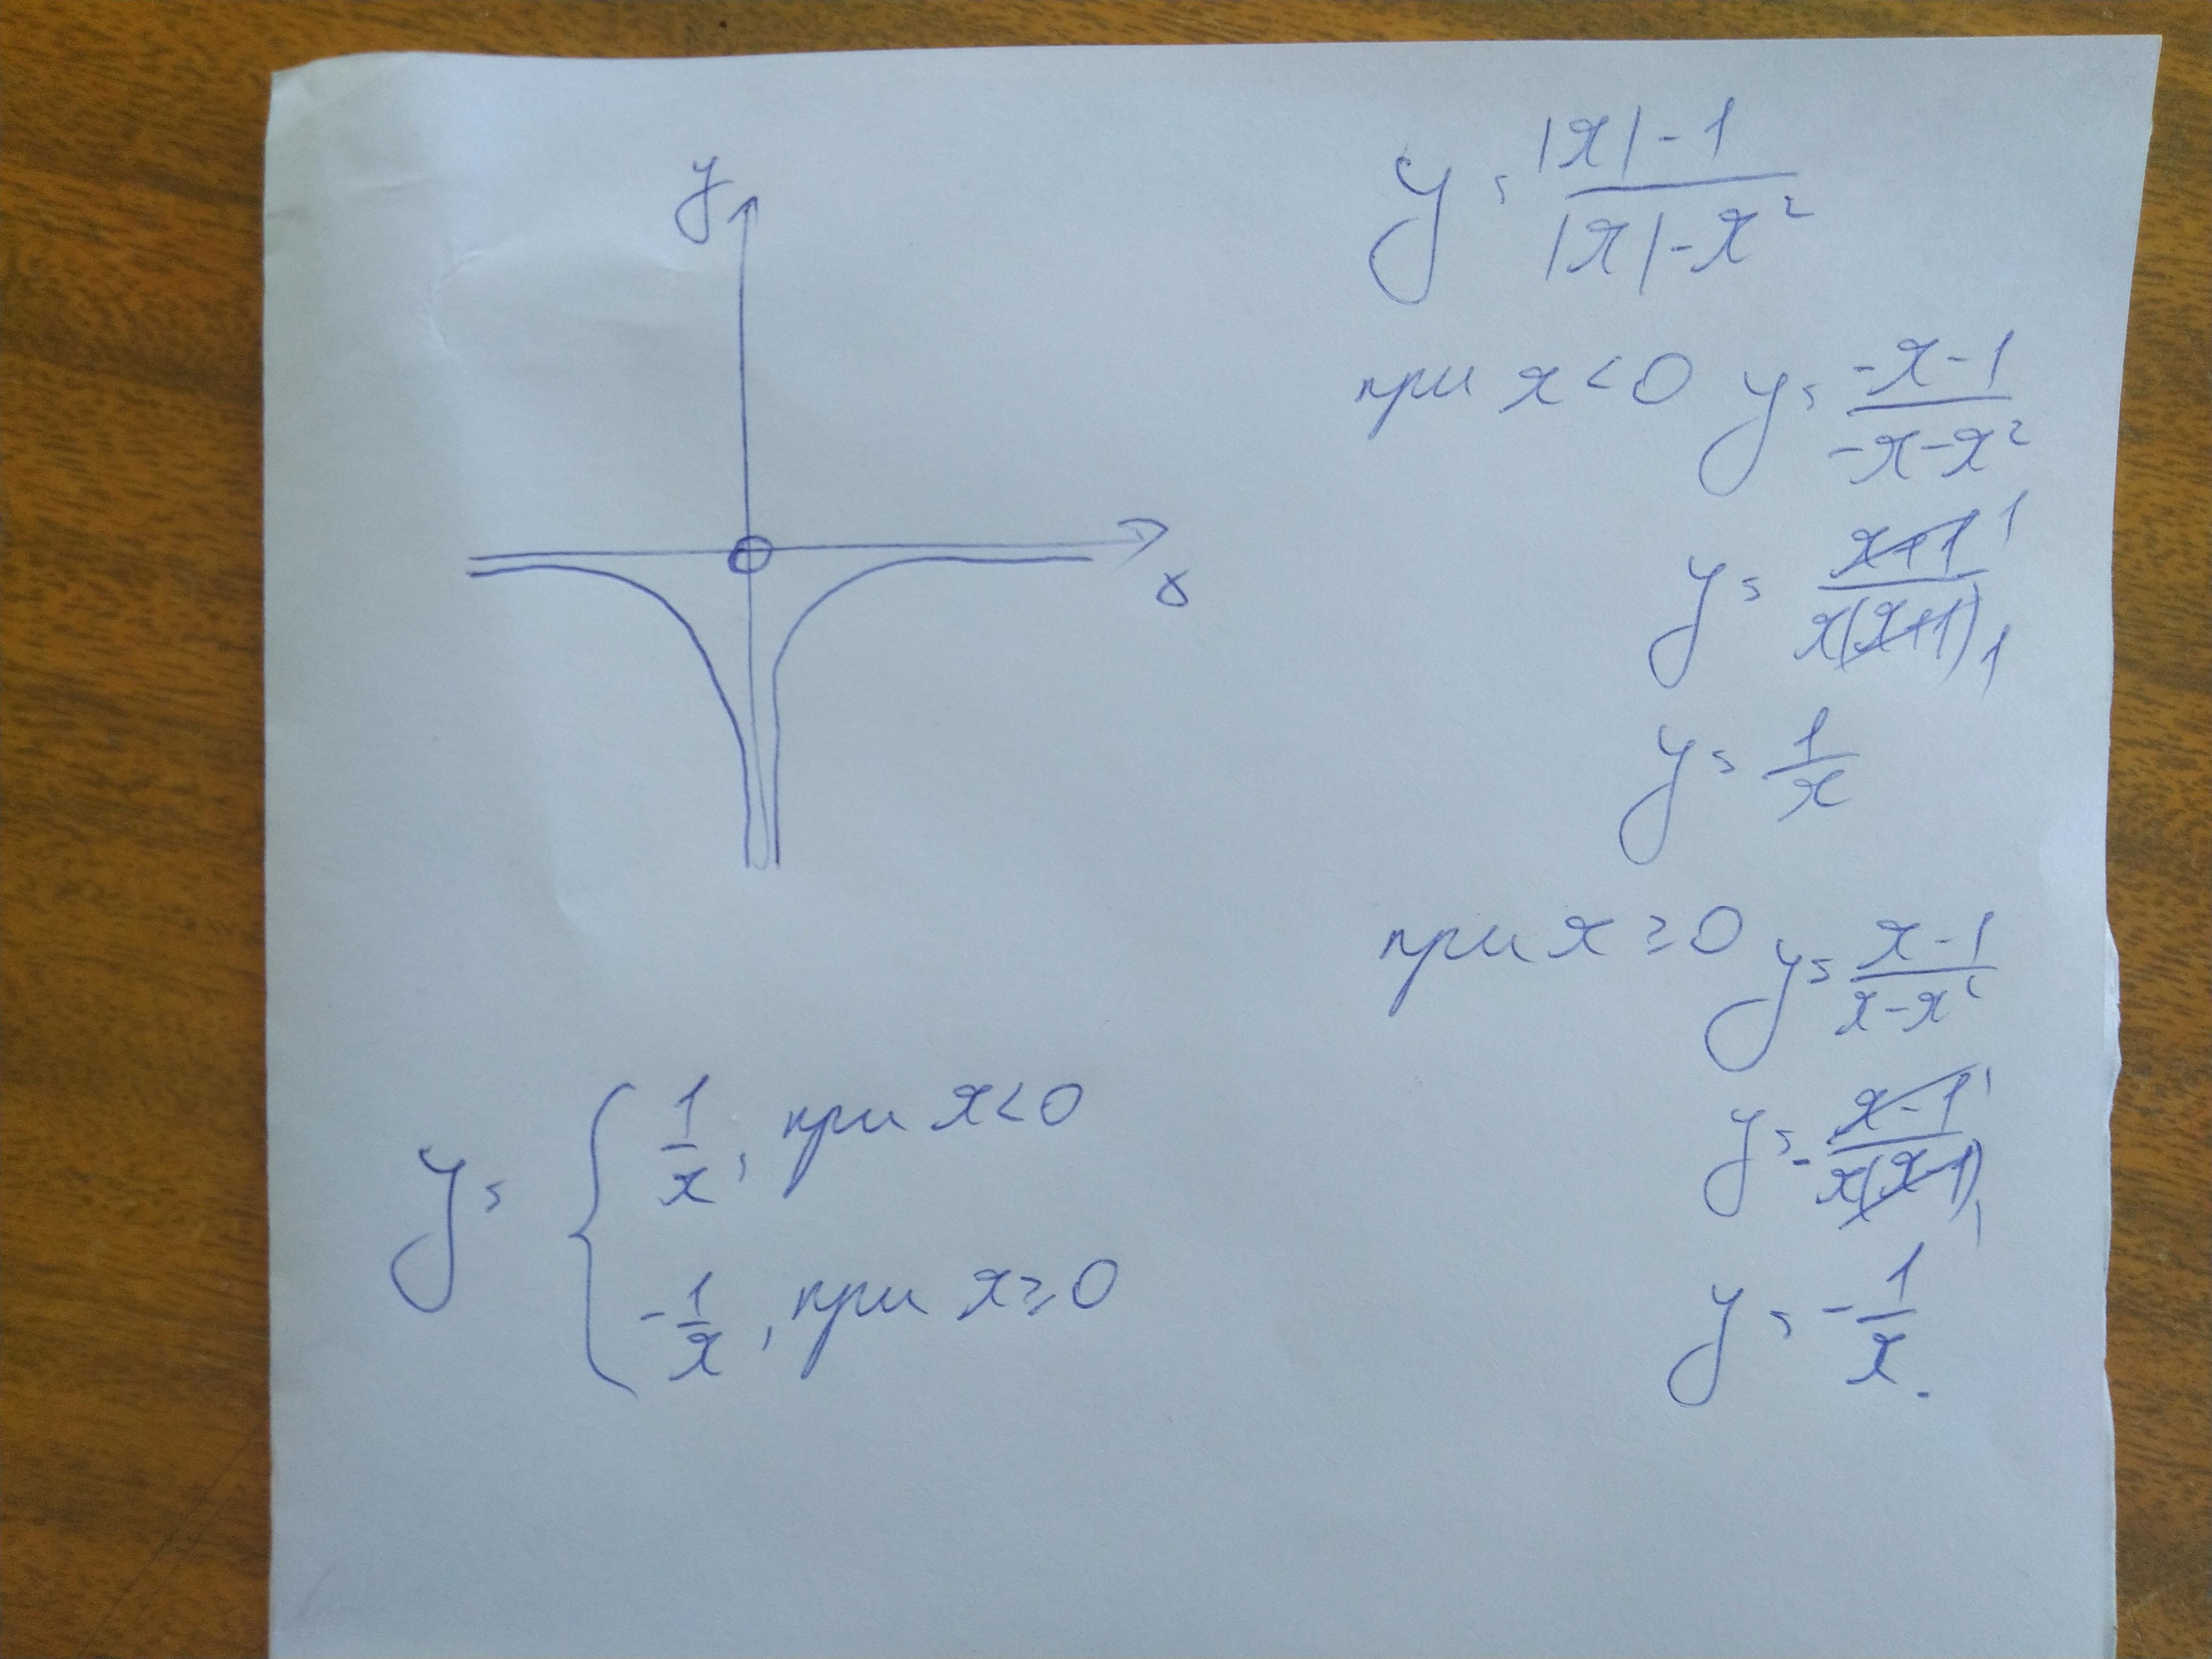 y
x
y = |x|-1 / |x|-x²
при x<0 y = -x-1 / -x-x²
y = x+1 / x(x+1) 1 1
y = 1/x
при x ≥ 0 y = x-1 / x-x²
y = - x-1 / x(x-1) 1 1
y = -1/x.
y = { 1/x, при x<0
-1/x, при x≥0